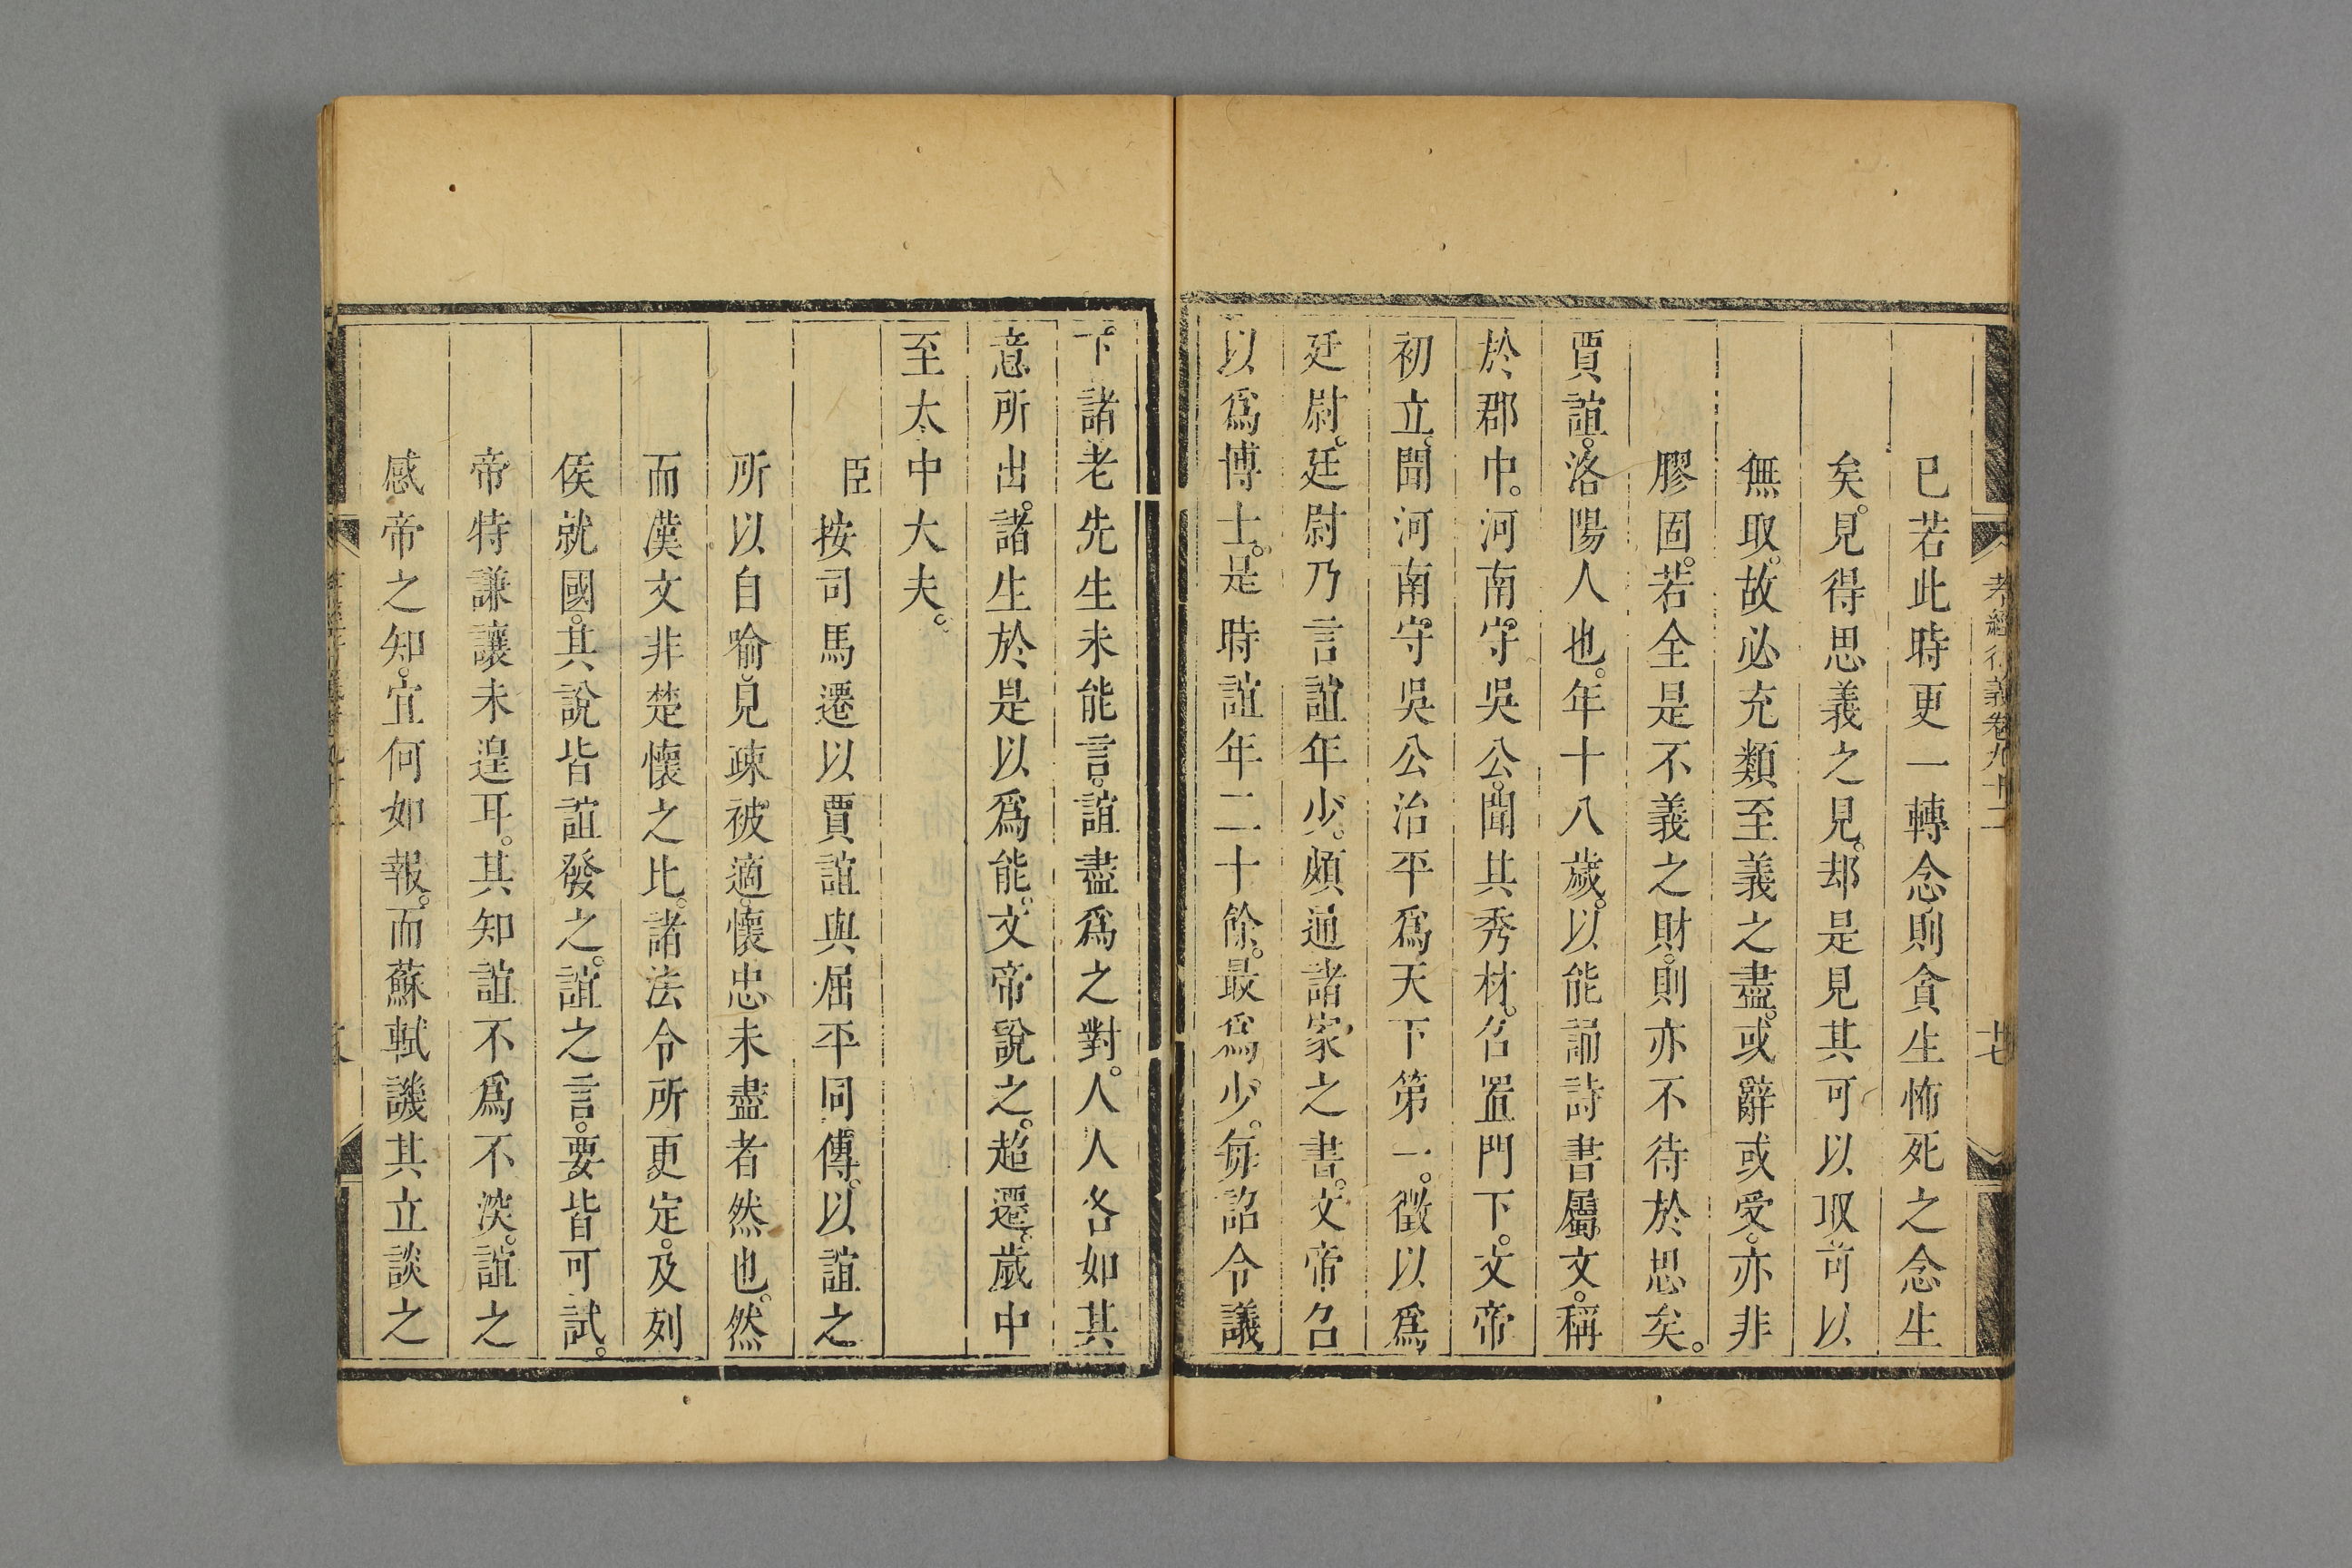 孝經衍義卷九十二
廿七
已若此時更一轉念則貪生怖死之念生
矣。見得思義之見。却是見其可以取可以
無取。故必充類至義之盡。或辭或受。亦非
膠固。若全是不義之財。則亦不待於思矣。
賈誼。洛陽人也。年十八歲。以能誦詩書屬文。稱
於郡中。河南守吳公。聞其秀材。召置門下。文帝
初立。聞河南守吳公治平爲天下第一。徵以爲
廷尉。廷尉乃言誼年少。頗通諸家之書。文帝召
以爲博士。是時誼年二十餘。最爲少。每詔令議
下。諸老先生未能言。誼盡爲之對。人人各如其
意所出。諸生於是以爲能。文帝說之。超遷。歲中
至太中大夫。
臣按司馬遷以賈誼與屈平同傳。以誼之
所以自喻。見疎被適。懷忠未盡者然也。然
而漢文非楚懷之比。諸法令所更定。及列
侯就國。其說皆誼發之。誼之言。要皆可試。
帝特謙讓未遑耳。其知誼不爲不深。誼之
感帝之知。宜何如報。而蘇軾譏其立談之